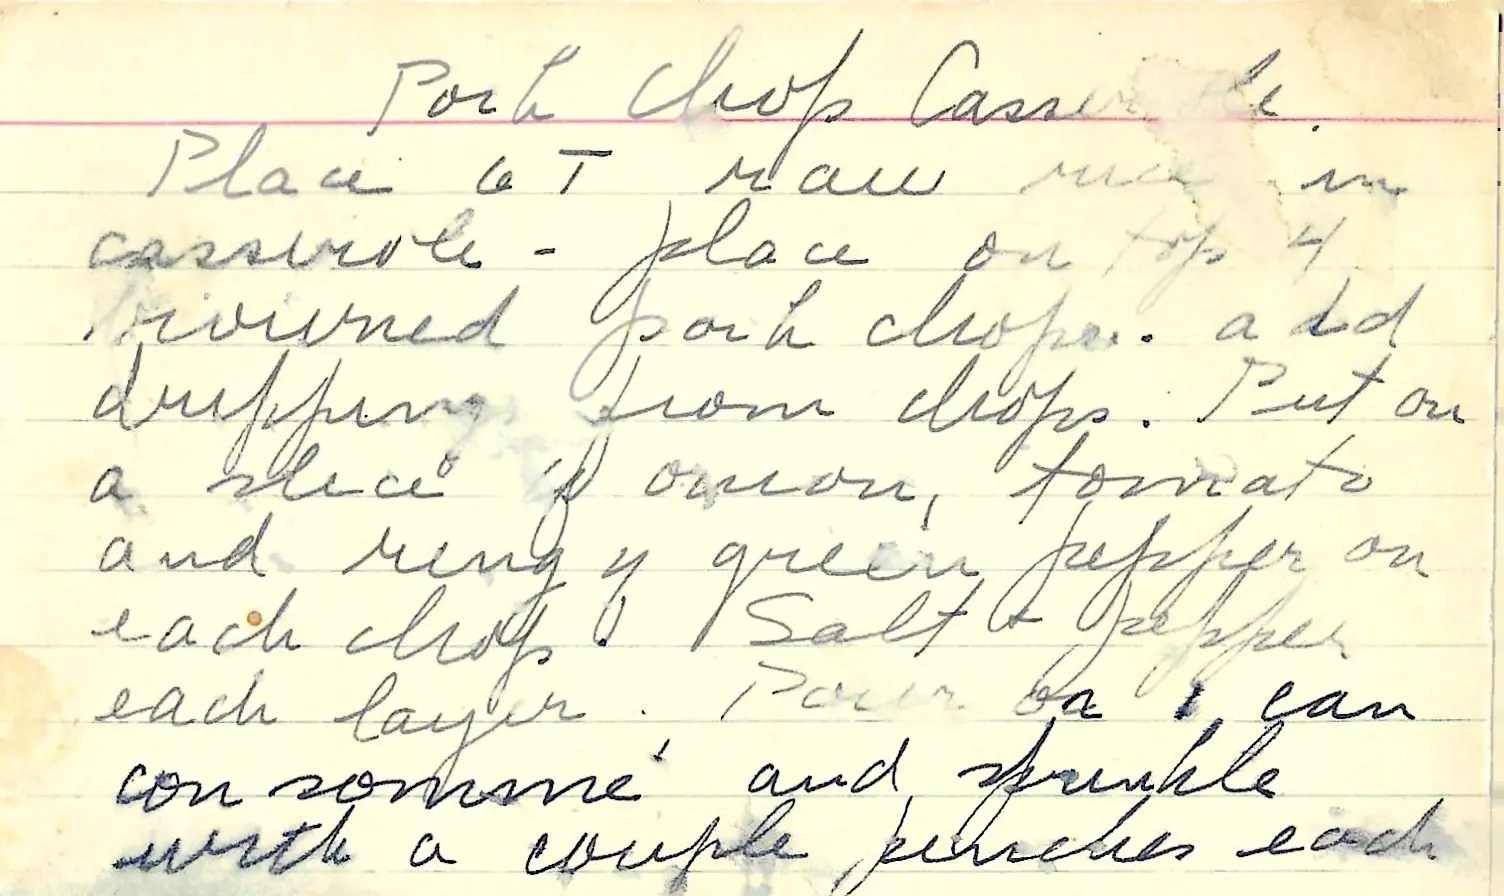 Pork Chop Casserole.
Place 6 T raw rice in
casserole - place on top 4
browned pork chops. add
drippings from chops. Put on
a slice of onion, tomato
and ring of green pepper on
each chop. Salt & pepper
each layer. Pour on 1 can
consommé and sprinkle
with a couple pinches each